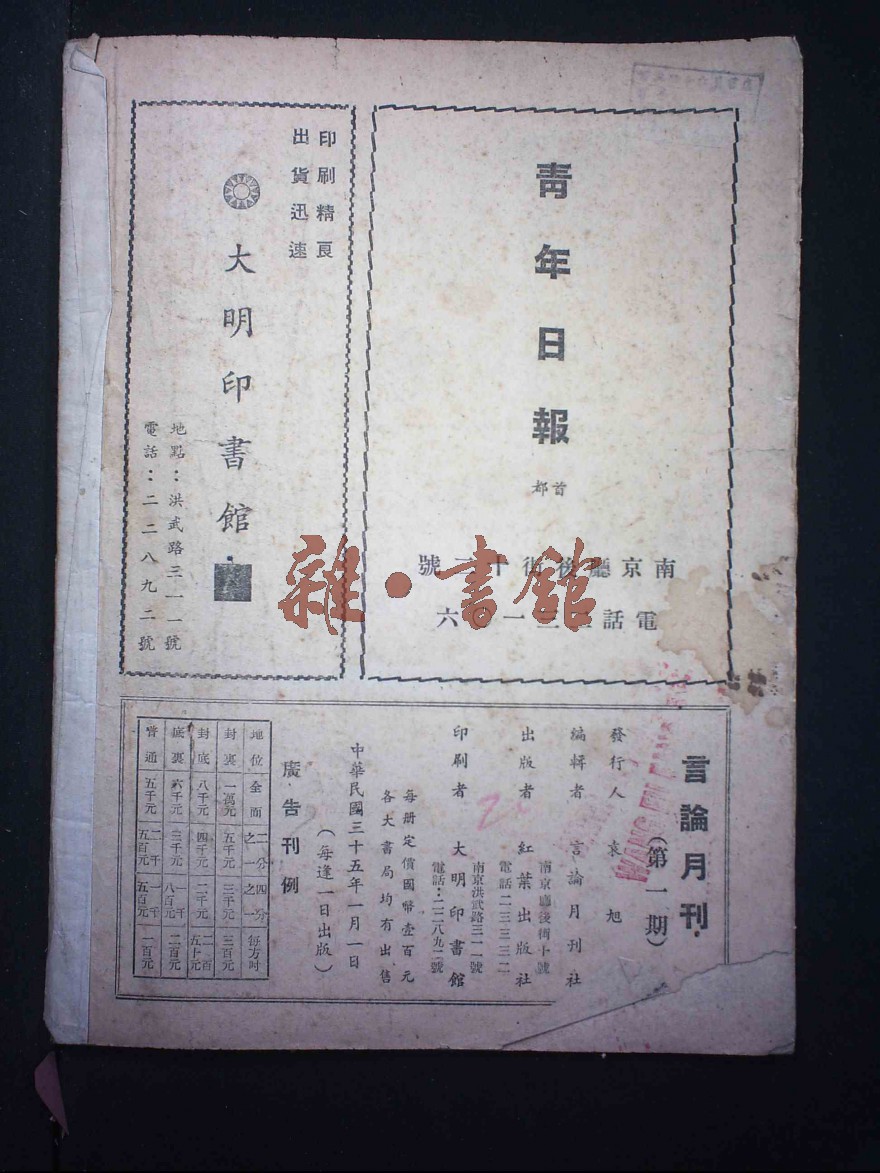 青年日報
首都
南京廳後街十二號
電話二三一 六
印刷精良
出貨迅速
大明印書館
地點：洪武路三一一號
電話：二二八九二號
雜·書館
言論月刊
（第一期）
發行人 袁旭
編輯者 言論月刊社
出版者 紅葉出版社
南京廳後街十號
電話二三三三二
印刷者 大明印書館
南京洪武路三一一號
電話：二二八九二號
每册定價國幣壹百元
各大書局均有出售
中華民國三十五年一月一日
（每逢一日出版）
廣告刊例
地位 全面 二分之一 四分之一 每方吋
封裏 一萬元 五千元 三千元 三百元
封底 八千元 四千元 二千元 二百五十元
底裏 六千元 三千元 一千八百元 二百元
普通 五千元 二千五百元 一千五百元 一百元